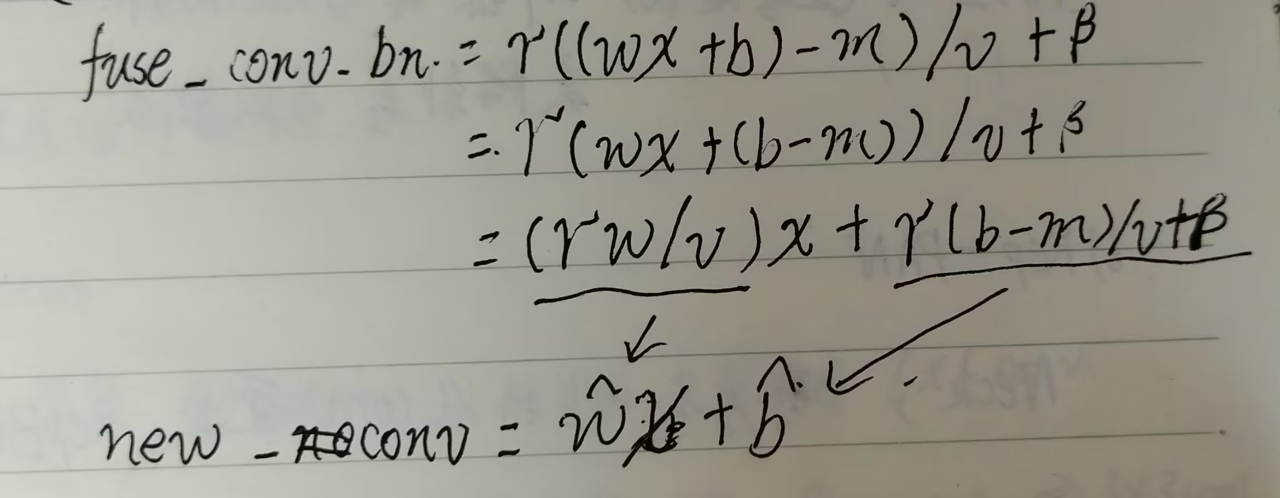 fuse_conv_bn. = γ((wx+b)-m)/v+β
= γ(wx+(b-m))/v+β
= (γw/v)x+γ(b-m)/v+β
new_conv = ŵx+b̂